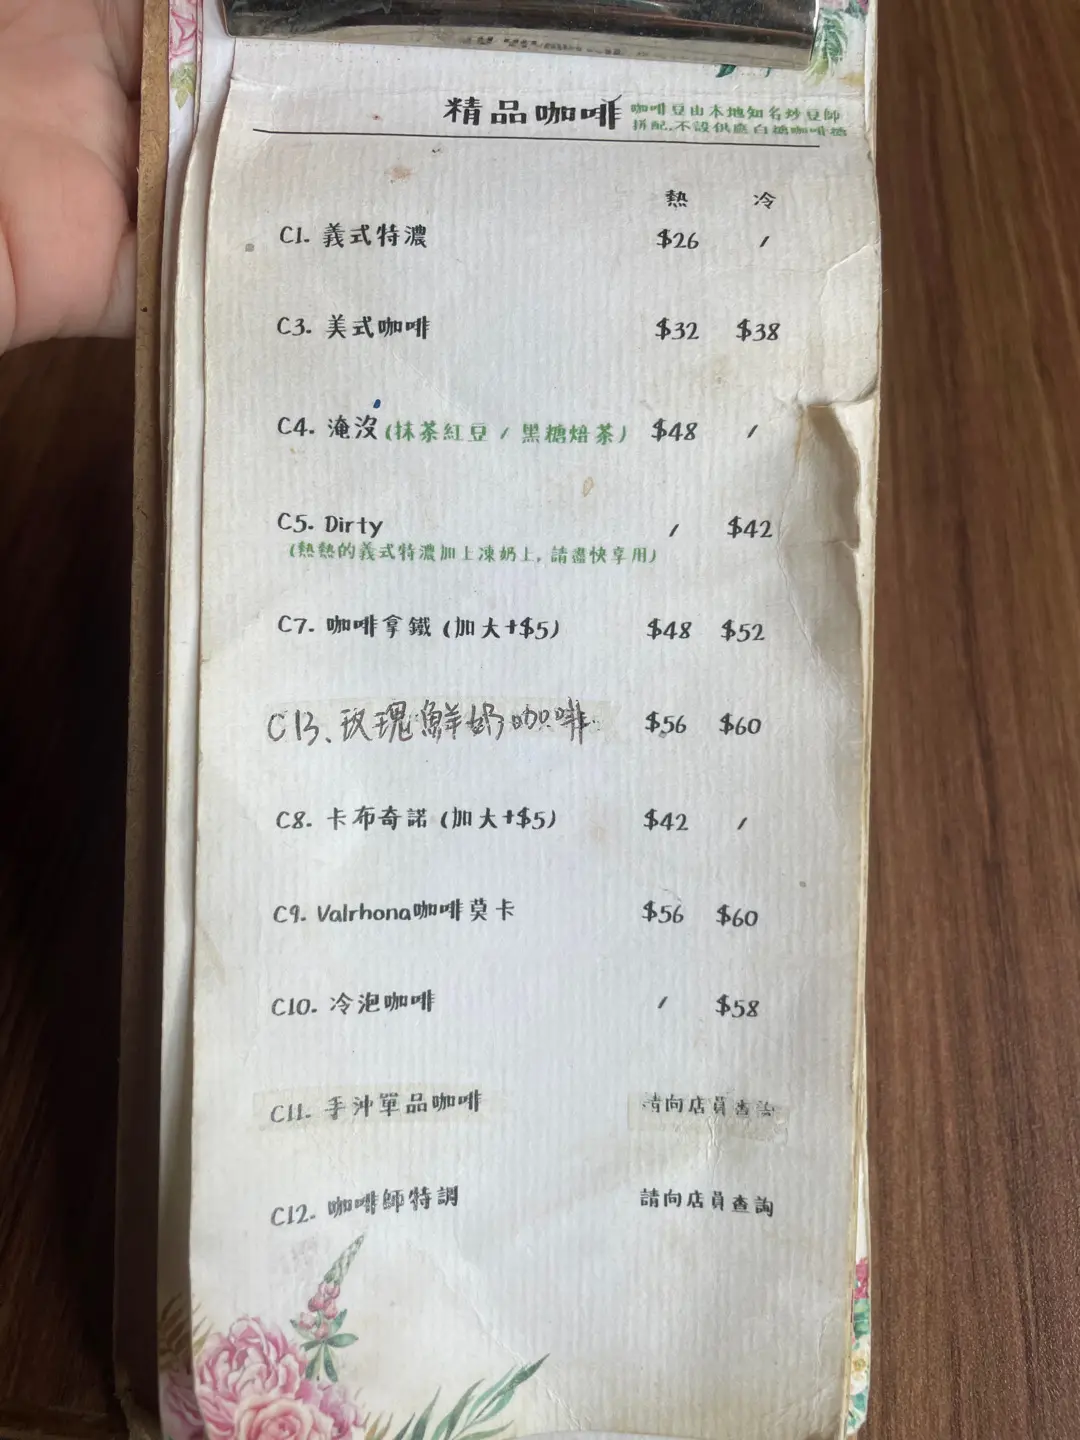 精品咖啡 咖啡豆由本地知名炒豆師
拼配,不設供應白糖咖啡糖
熱 冷
C1. 義式特濃 $26 /
C3. 美式咖啡 $32 $38
C4. 淹沒(抹茶紅豆 / 黑糖焙茶) $48 /
C5. Dirty / $42
(熱熱的義式特濃加上凍奶上,請盡快享用)
C7. 咖啡拿鐵 (加大+$5) $48 $52
C13、玫瑰鮮奶咖啡 $56 $60
C8. 卡布奇諾 (加大+$5) $42 /
C9. Valrhona咖啡莫卡 $56 $60
C10. 冷泡咖啡 / $58
C11. 手沖單品咖啡 請向店員查詢
C12. 咖啡師特調 請向店員查詢